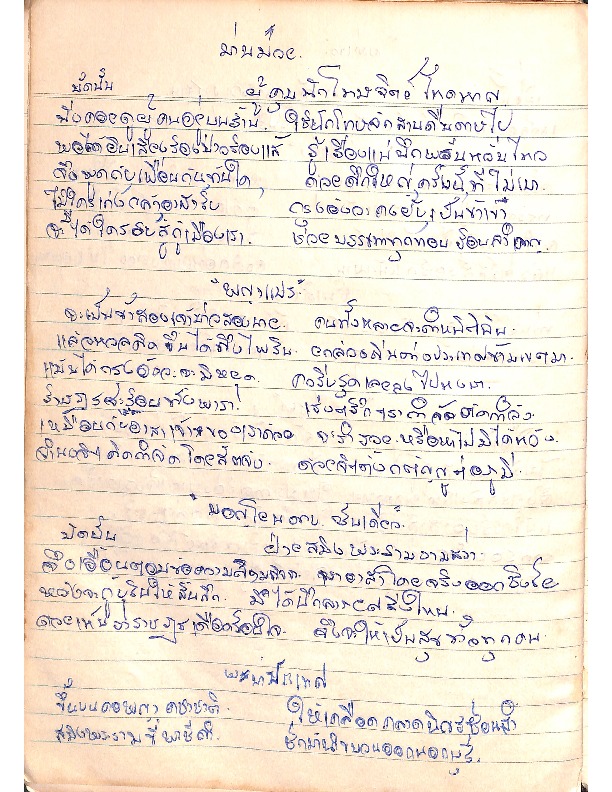 บัดนั้น ผู้คุมนักโทษจิตต์ โหดหาญ
ใช้นักโทษจักสานดื่นดาษไป
พอได้ยินเสียงร้องป่าวร้องแส้ รู้เรื่องแน่นึกพรั่นหวั่นไหว
จึงพูดกับเพื่อนกันทันใด ด้วยศึกใหญ่ครั้งนี้ที่ไม่เบา
ไม่ใคร่เก่งกล้าอาสารับ กรุงอังวะคงยับเป็นข้าเขา
จะได้ใครรบสู้กู้เมืองเรา. ช่วยบรรเทาทุกข์ทน
"พญาแปร"
จะเป็นข้าสองเจ้าบ่าวสองนาย. คนทั้งหลายจะตำหนิติฉิน.
แล้วหวลคิดขึ้นได้ถึงไพริน. ยกล่วงดินต่างประเทศข้ามเขตมา.
แม้นได้กรุงอังวะจะมิหยุด. คงรีบรุดเลยลงไปหงสา.
จะร้อนทั้งพารา. เร่งตรึกตรา
เหมือนกับอาสาเจ้าของเราด้วย จะร่ำรวยหรือหาไม่มิได้หวัง.
จำนงจิตคิดกำจัดโดยสัจจัง. ด้วยจิตตั้งกตัญญูต่อภูมี.
ชั้นเดียว"
บัดนั้น ฝ่ายสมิงพระราม
จึงเอื้อนตอบข้อความตาม ขออาสาโดยจริงออกชิงชัย
หวังจะกู้บุรินให้สิ้นศึก. มิได้นึกลาภยศสิ่งไหน.
ด้วยเห็นว่าราษฎรเดือดร้อนใจ. คิดจะให้เป็นสุขทั่วทุกคน.
พม่าประเทศ
ขึ้นบนคอพญาคชาชาติ. ให้เกลื่อนกลาด
สมิงพระรามขี่พาชีศรี. ชักม้านำขบวนออกนอกบุรี.